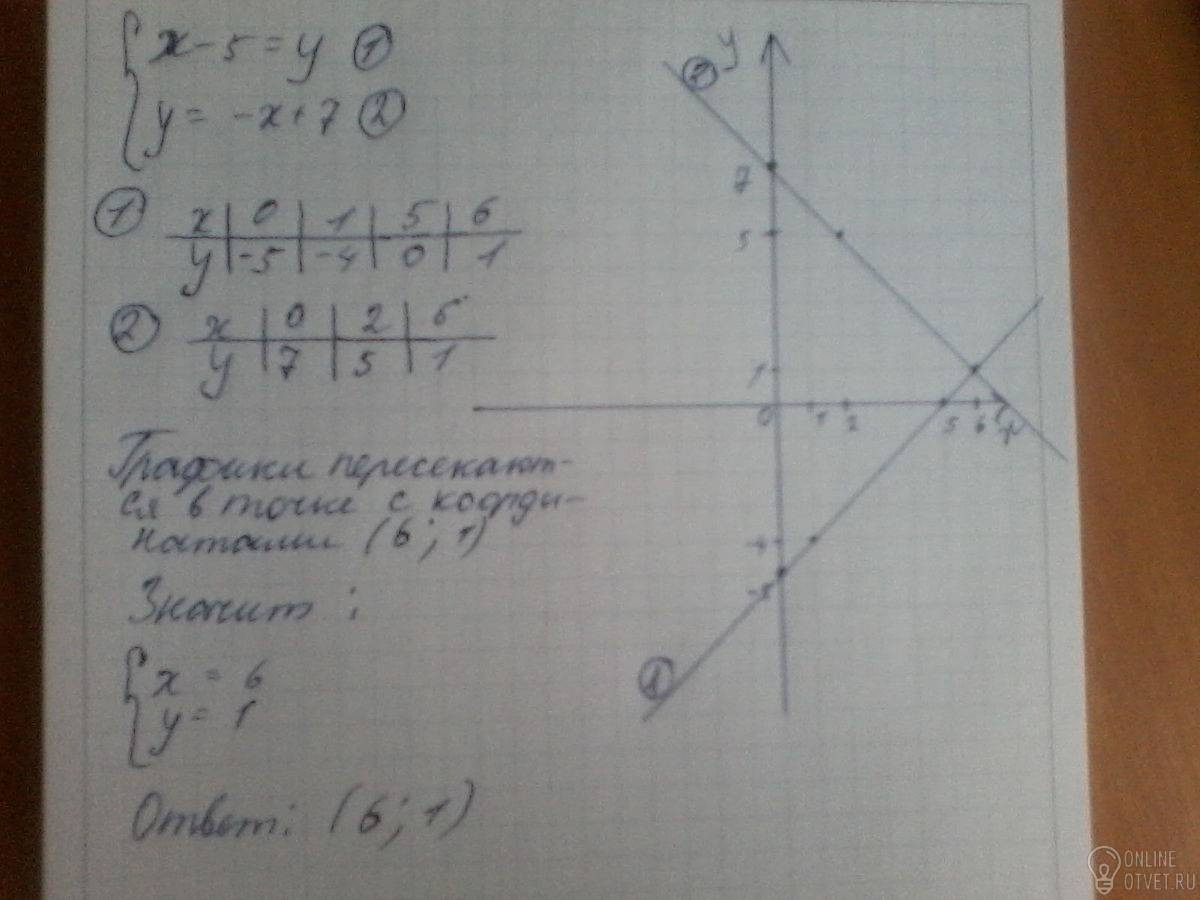 x - 5 = y ①
y = -x + 7 ②
① x | 0 | 1 | 5 | 6
y | -5 | -4 | 0 | 1
② x | 0 | 2 | 6
y | 7 | 5 | 1
Графики пересекают-
ся в точке с коорди-
натами (6; 1)
Значит:
x = 6
y = 1
Ответ: (6; 1)
② y
7
5
1
0 1 2 5 6
-4
-5
①
ONLINE
OTVET.RU